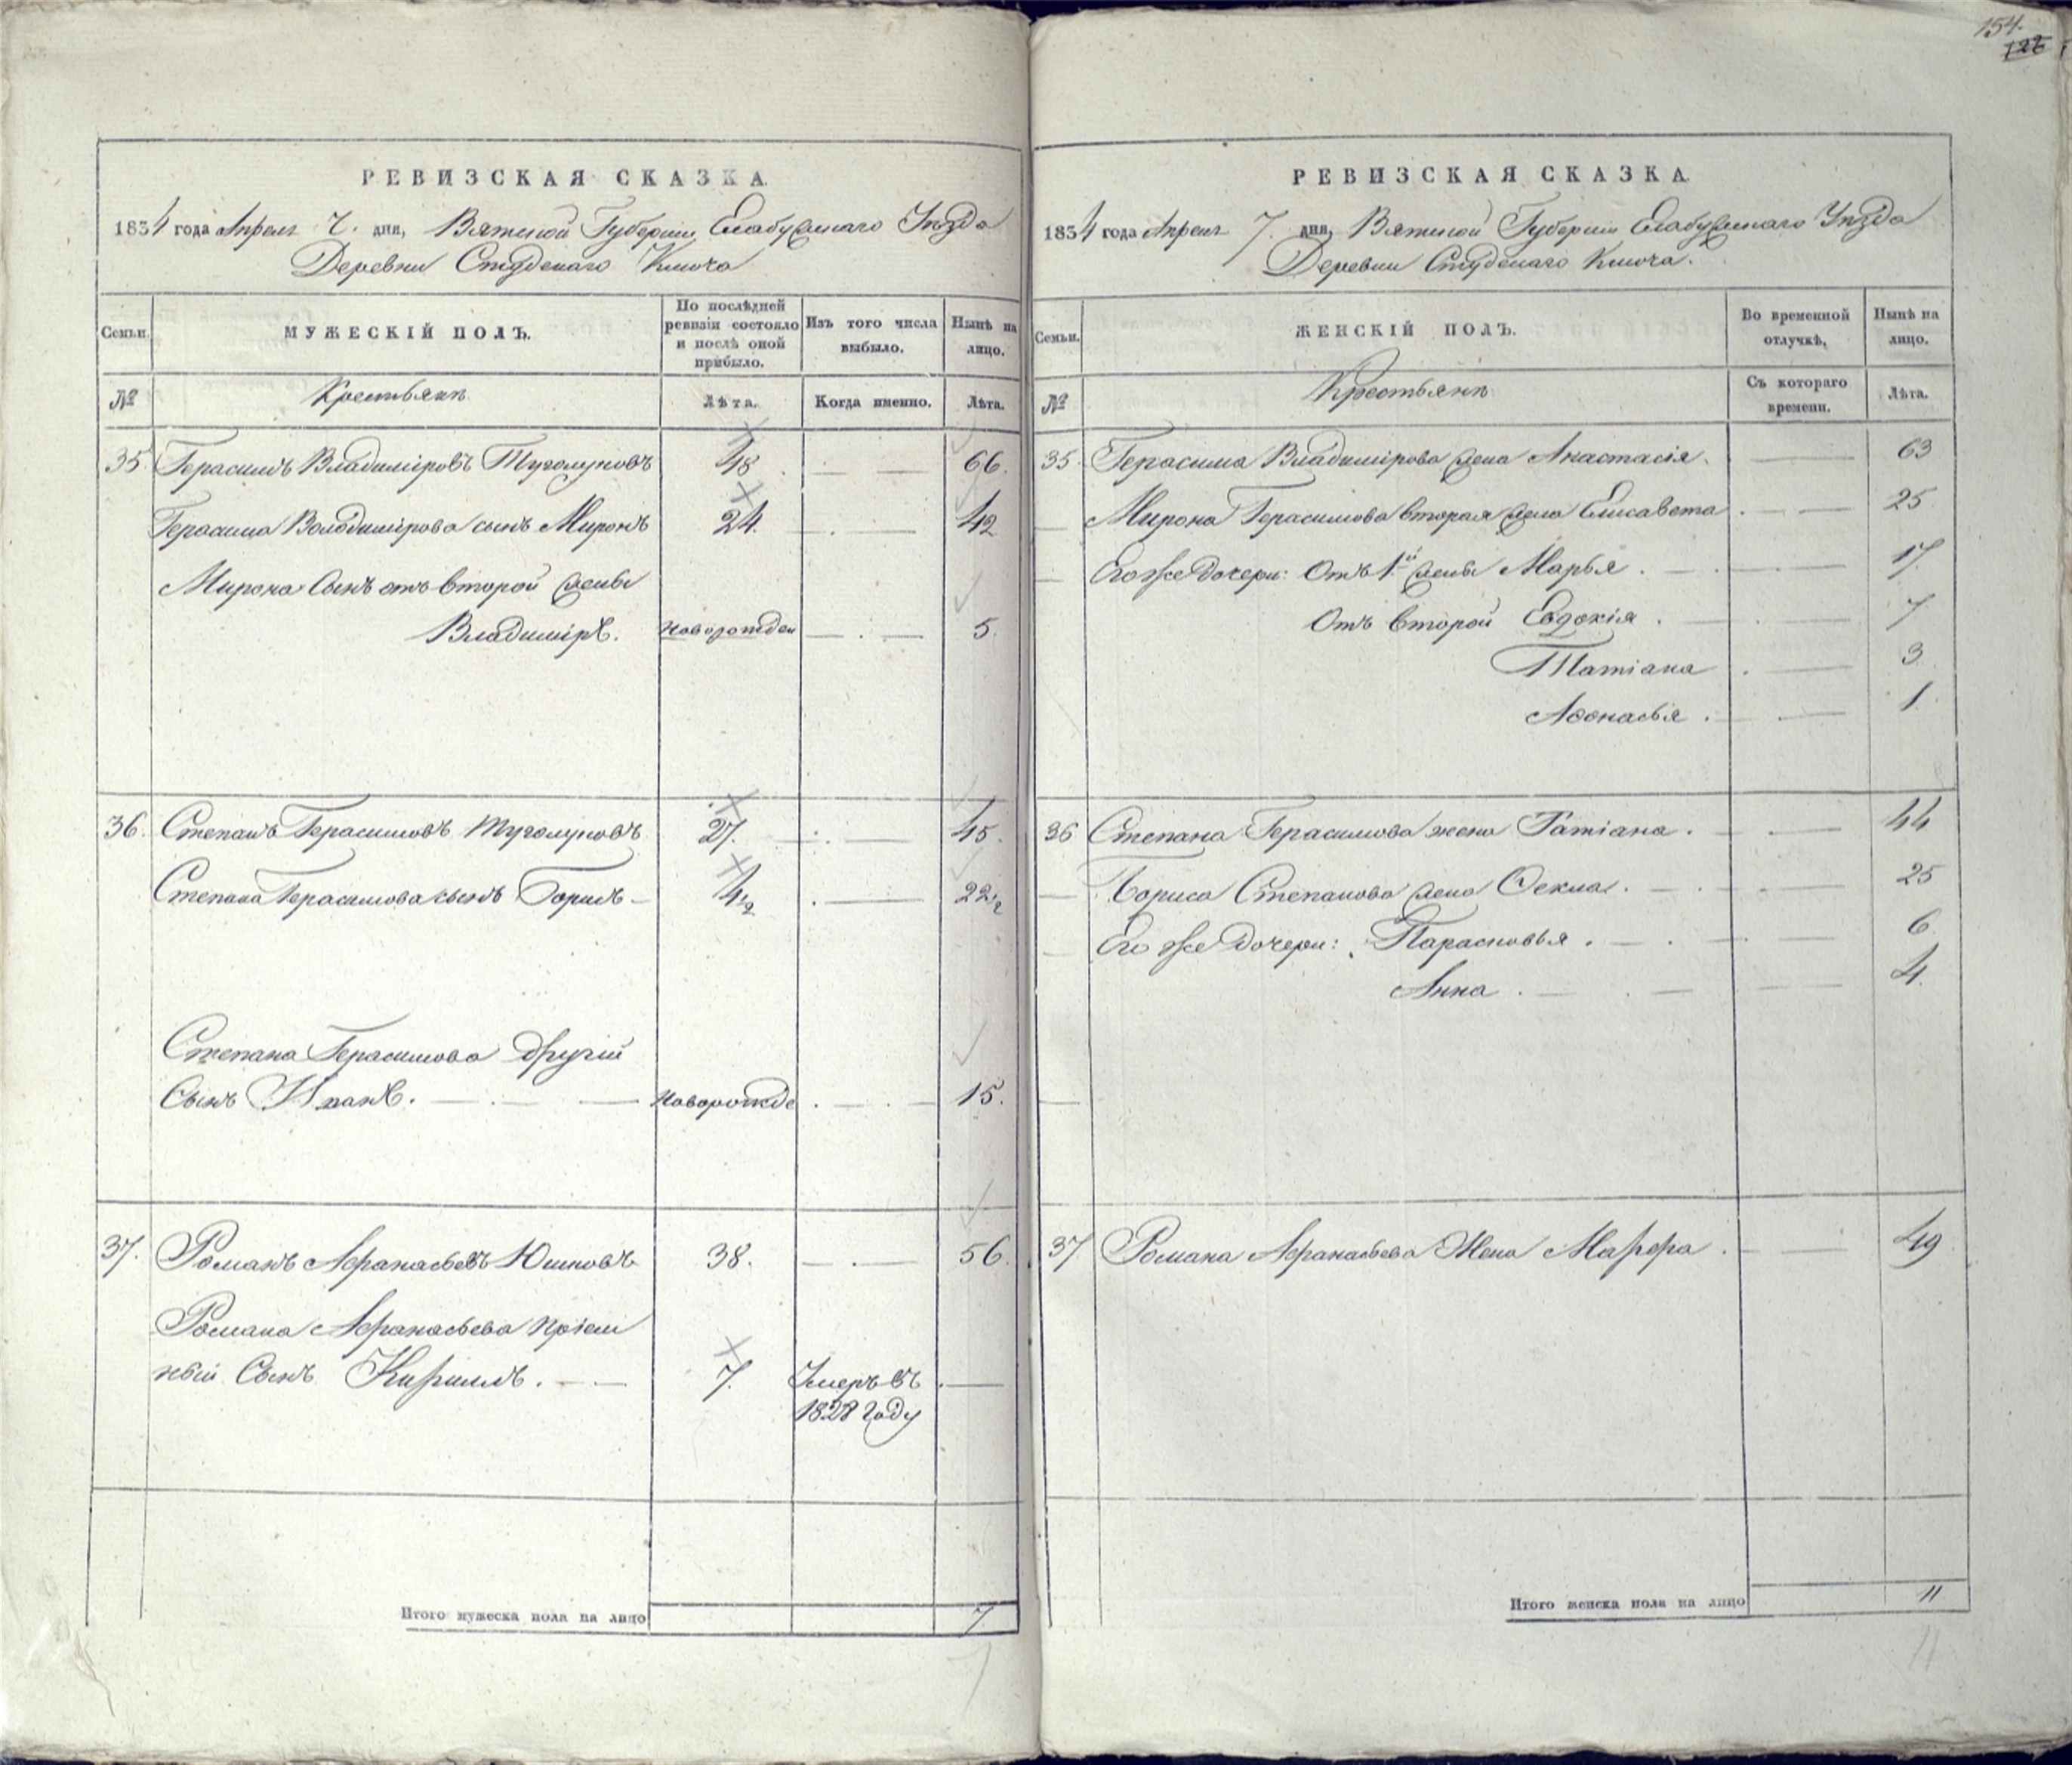 154.
126
РЕВИЗСКАЯ СКАЗКА.
1834 года Апреля 7. дня, Вятской Губернии Елабужскаго Уѣзда
Деревни Студенаго Ключа
Семьи.
МУЖЕСКІЙ ПОЛЪ.
По послѣдней ревизіи состояло и послѣ оной прибыло.
Изъ того числа выбыло.
Нынѣ на лицо.
№
Крестьянъ
Лѣта.
Когда именно.
Лѣта.
35. Герасимъ Владиміровъ Туголуковъ 48 66.
Герасима Володимірова сынъ Миронъ 24. 42
Мирона Сынъ отъ второй жены
Владиміръ. новорожден 5.
36. Степанъ Герасимовъ Туголуковъ 27. 45.
Степана Герасимова сынъ Борисъ 4½ 22½
Степана Герасимова другій
Сынъ Иванъ. новорожде 15.
37. Романъ Афанасьевъ Юшковъ 38. 56.
Романа Афанасьева пріем
ный Сынъ Кирилъ. 7. Умеръ въ
1828 году
Итого мужеска пола на лицо 7.
7
РЕВИЗСКАЯ СКАЗКА.
1834 года Апреля 7. дня, Вятской Губерніи Елабужскаго Уѣзда
Деревни Студенаго Ключа.
Семьи.
ЖЕНСКІЙ ПОЛЪ.
Во временной отлучкѣ,
Нынѣ на лицо.
№
Крестьянъ
Съ котораго времени.
Лѣта.
35. Герасима Владимірова жена Анастасія. 63
Мирона Герасимова вторая жена Елисавета 25
Его же дочери: Отъ 1й жены Марья. 17.
Отъ второй Евдокія. 7
Татіана 3
Афонасья. 1.
36 Степана Герасимова жена Татіана. 44
Бориса Степанова жена Фекла. 25
Его же дочери: Парасковья. 6.
Анна. 4.
37 Романа Афанасьева Жена Марфа. 49
Итого женска пола на лицо 11
11